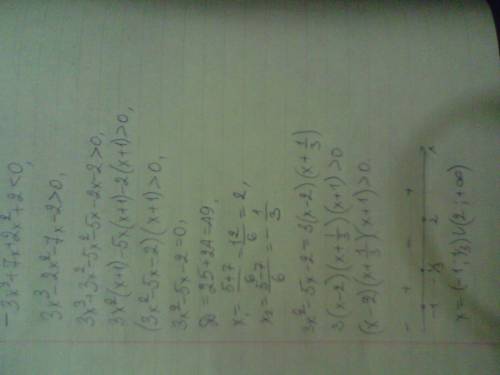 -3x³+7x+2x²+2<0,
3x³-2x²-7x-2>0,
3x³+3x²-5x²-5x-2x-2>0,
3x²(x+1)-5x(x+1)-2(x+1)>0,
(3x²-5x-2)(x+1)>0,
3x²-5x-2=0,
D=25-24=49,
x₁=(5+7)/6=12/6=2,
x₂=(5-7)/6=-1/3.
3x²-5x-2=3(x-2)(x+1/3)
3(x-2)(x+1/3)(x+1)>0
(x-2)(x+1/3)(x+1)>0.
- + - +
-1 -1/3 2 x
x=(-1;1/3)∪(2;+∞)